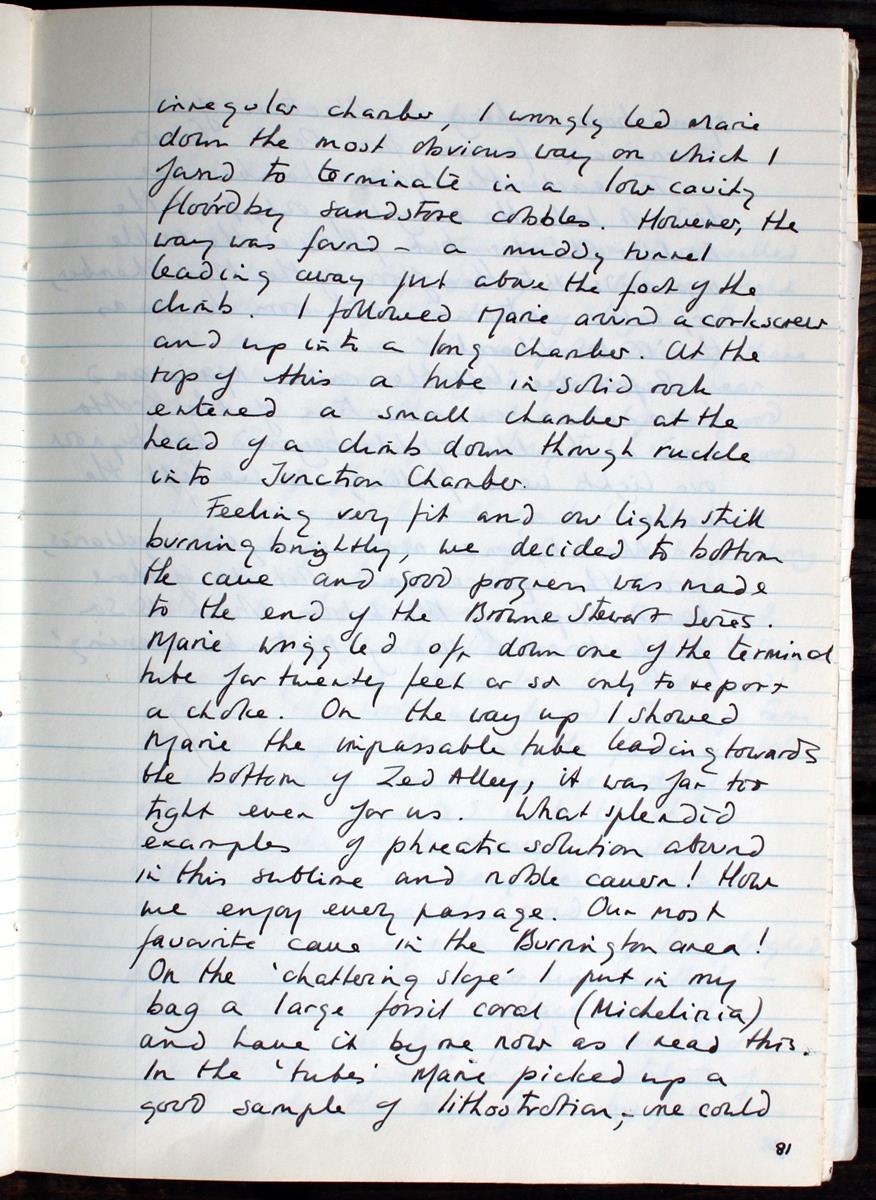 irregular chamber, I wrongly led Marie
down the most obvious way on which I
found to terminate in a low cavity
floor'd by sandstone cobbles. However, the
way was found - a muddy tunnel
leading away just above the foot of the
climb. I followed Marie around a corkscrew
and up into a long chamber. At the
top of this a tube in solid rock
entered a small chamber at the
head of a climb down through ruckle
into Junction Chamber.
Feeling very fit and our lights still
burning brightly, we decided to bottom
the cave and good progress was made
to the end of the Browne Stewart Series.
Marie wriggled off down one of the terminal
tube for twenty feet or so only to report
a choke. On the way up I showed
Marie the impassable tube leading towards
the bottom of Zed Alley, it was far too
tight even for us. What splendid
examples of phreatic solution abound
in this sublime and noble cavern! How
we enjoy every passage. Our most
favourite cave in the Burrington area!
On the 'chattering slope' I put in my
bag a large fossil coral (Michelinia)
and have it by me now as I read this.
In the 'tubes' Marie picked up a
good sample of lithostrotian, - one could
81